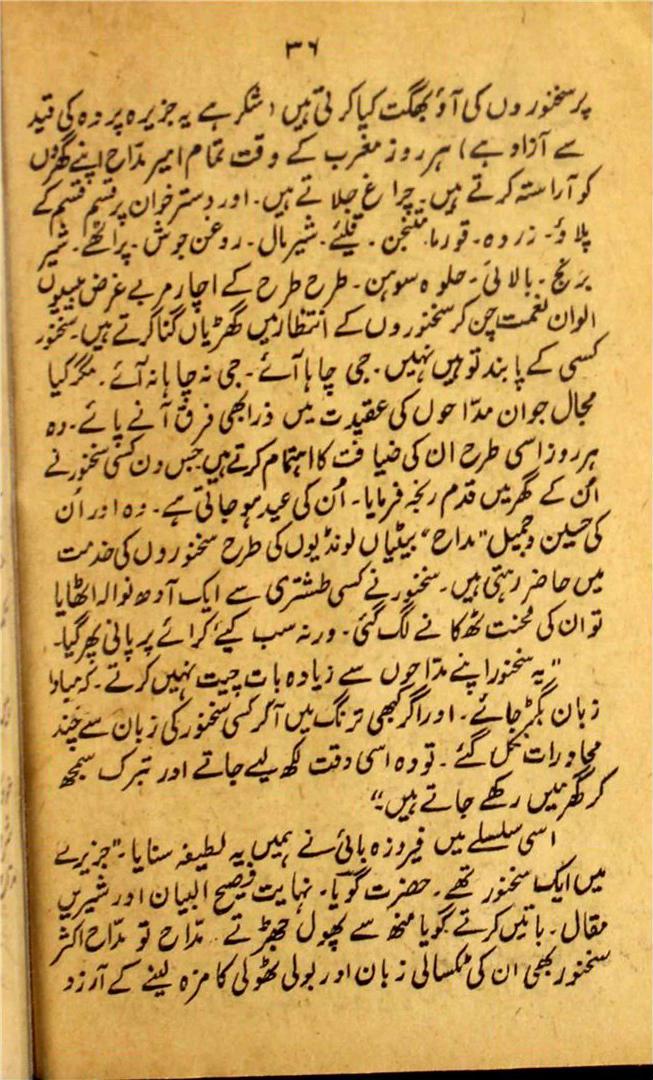 ۳۶
پر سخنوروں کی آؤ بھگت کیا کرتی ہیں (شکر ہے یہ جزیرہ پردہ کی قید
سے آزاد ہے) ہر روز مغرب کے وقت تمام امیر مدّاح اپنے گھروں
کو آراستہ کرتے ہیں۔ چراغ جلاتے ہیں۔ اور دسترخوان پر قسم قسم کے
پلاؤ۔ زردہ۔ قورما۔ متنجن۔ قلیئے۔ شیرمال۔ روغن جوش۔ پراٹھے۔ شیر
برنج۔ بالائی۔ حلوہ سوہن۔ طرح طرح کے اچار مربے غرض بیسیوں
الوان نعمت چن کر سخنوروں کے انتظار میں گھڑیاں گنا کرتے ہیں۔ سخنور
کسی کے پابند تو ہیں نہیں۔ جی چاہا آئے۔ جی نہ چاہا نہ آئے۔ مگر کیا
مجال جو ان مدّاحوں کی عقیدت میں ذرا بھی فرق آنے پائے۔ وہ
ہر روز اسی طرح ان کی ضیافت کا اہتمام کرتے ہیں جس دن کسی سخنور نے
اُن کے گھر میں قدم رنجہ فرمایا۔ اُن کی عید ہو جاتی ہے۔ وہ اور اُن
کی حسین و جمیل "مداح" بیٹیاں لونڈیوں کی طرح سخنوروں کی خدمت
میں حاضر رہتی ہیں۔ سخنور نے کسی طشتری سے ایک آدھ نوالہ اٹھایا
تو ان کی محنت ٹھکانے لگ گئی۔ ورنہ سب کیئے کرائے پر پانی پھر گیا۔
"یہ سخنور اپنے مدّاحوں سے زیادہ بات چیت نہیں کرتے۔ کہ مبادا
زبان بگڑ جائے۔ اور اگر کبھی ترنگ میں آ کر کسی سخنور کی زبان سے چند
محاورات نکل گئے۔ تو وہ اسی وقت لکھ لیے جاتے اور تبرک سمجھ
کر گھر میں رکھے جاتے ہیں"۔
اسی سلسلے میں فیروزہ بائی نے ہمیں یہ لطیفہ سنایا۔ "جزیرے
میں ایک سخنور تھے۔ حضرت گویؔا۔ نہایت فصیح البیان اور شیریں
مقال۔ باتیں کرتے گویا منھ سے پھول جھڑتے۔ مدّاح تو مدّاح اکثر
سخنور بھی ان کی ٹکسالی زبان اور بولی ٹھولی کا مزہ لینے کے آرزو